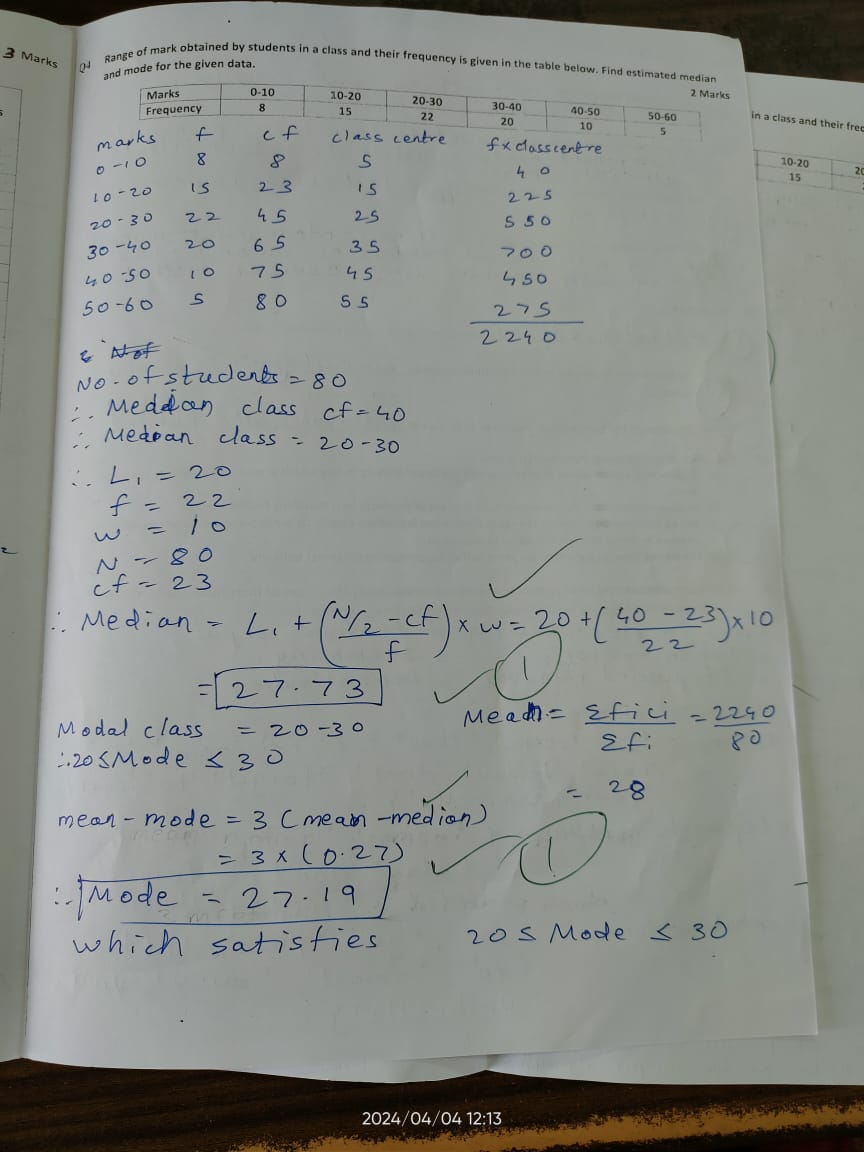 3 Marks
Q4 Range of mark obtained by students in a class and their frequency is given in the table below. Find estimated median
and mode for the given data.
2 Marks
Marks 0-10 10-20 20-30 30-40 40-50 50-60
Frequency 8 15 22 20 10 5
in a class and their freq
10-20 20
15
marks f cf class centre f x classcentre
0-10 8 8 5 40
10-20 15 23 15 225
20-30 22 45 25 550
30-40 20 65 35 700
40-50 10 75 45 450
50-60 5 80 55 275
2240
No. of students = 80
∴ Meddian class cf = 40
∴ Median class = 20-30
∴ L1 = 20
f = 22
w = 10
N = 80
cf = 23
∴ Median = L1 + (N/2 - cf / f) x w = 20 + (40 - 23 / 22) x 10
= 27.73
1
Modal class = 20-30
∴ 20 ≤ Mode ≤ 30
Mean = Σfici / Σfi = 2240 / 80
= 28
mean - mode = 3 (mean - median)
= 3 x (0.27)
1
∴ Mode = 27.19
which satisfies 20 ≤ Mode ≤ 30
2024/04/04 12:13